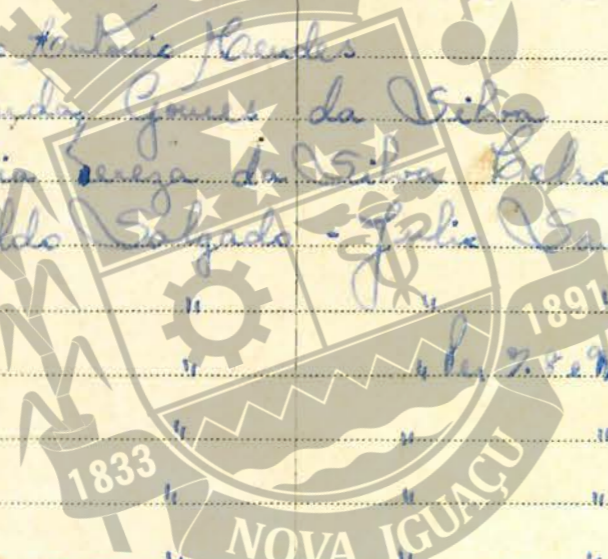 Antonio Mendes
Gomes da Silva
Tereza da Silva Celso
ldo Salgado - Julio
" "
1891
" "
" " "
1833
" " "
NOVA IGUAÇU
" " "